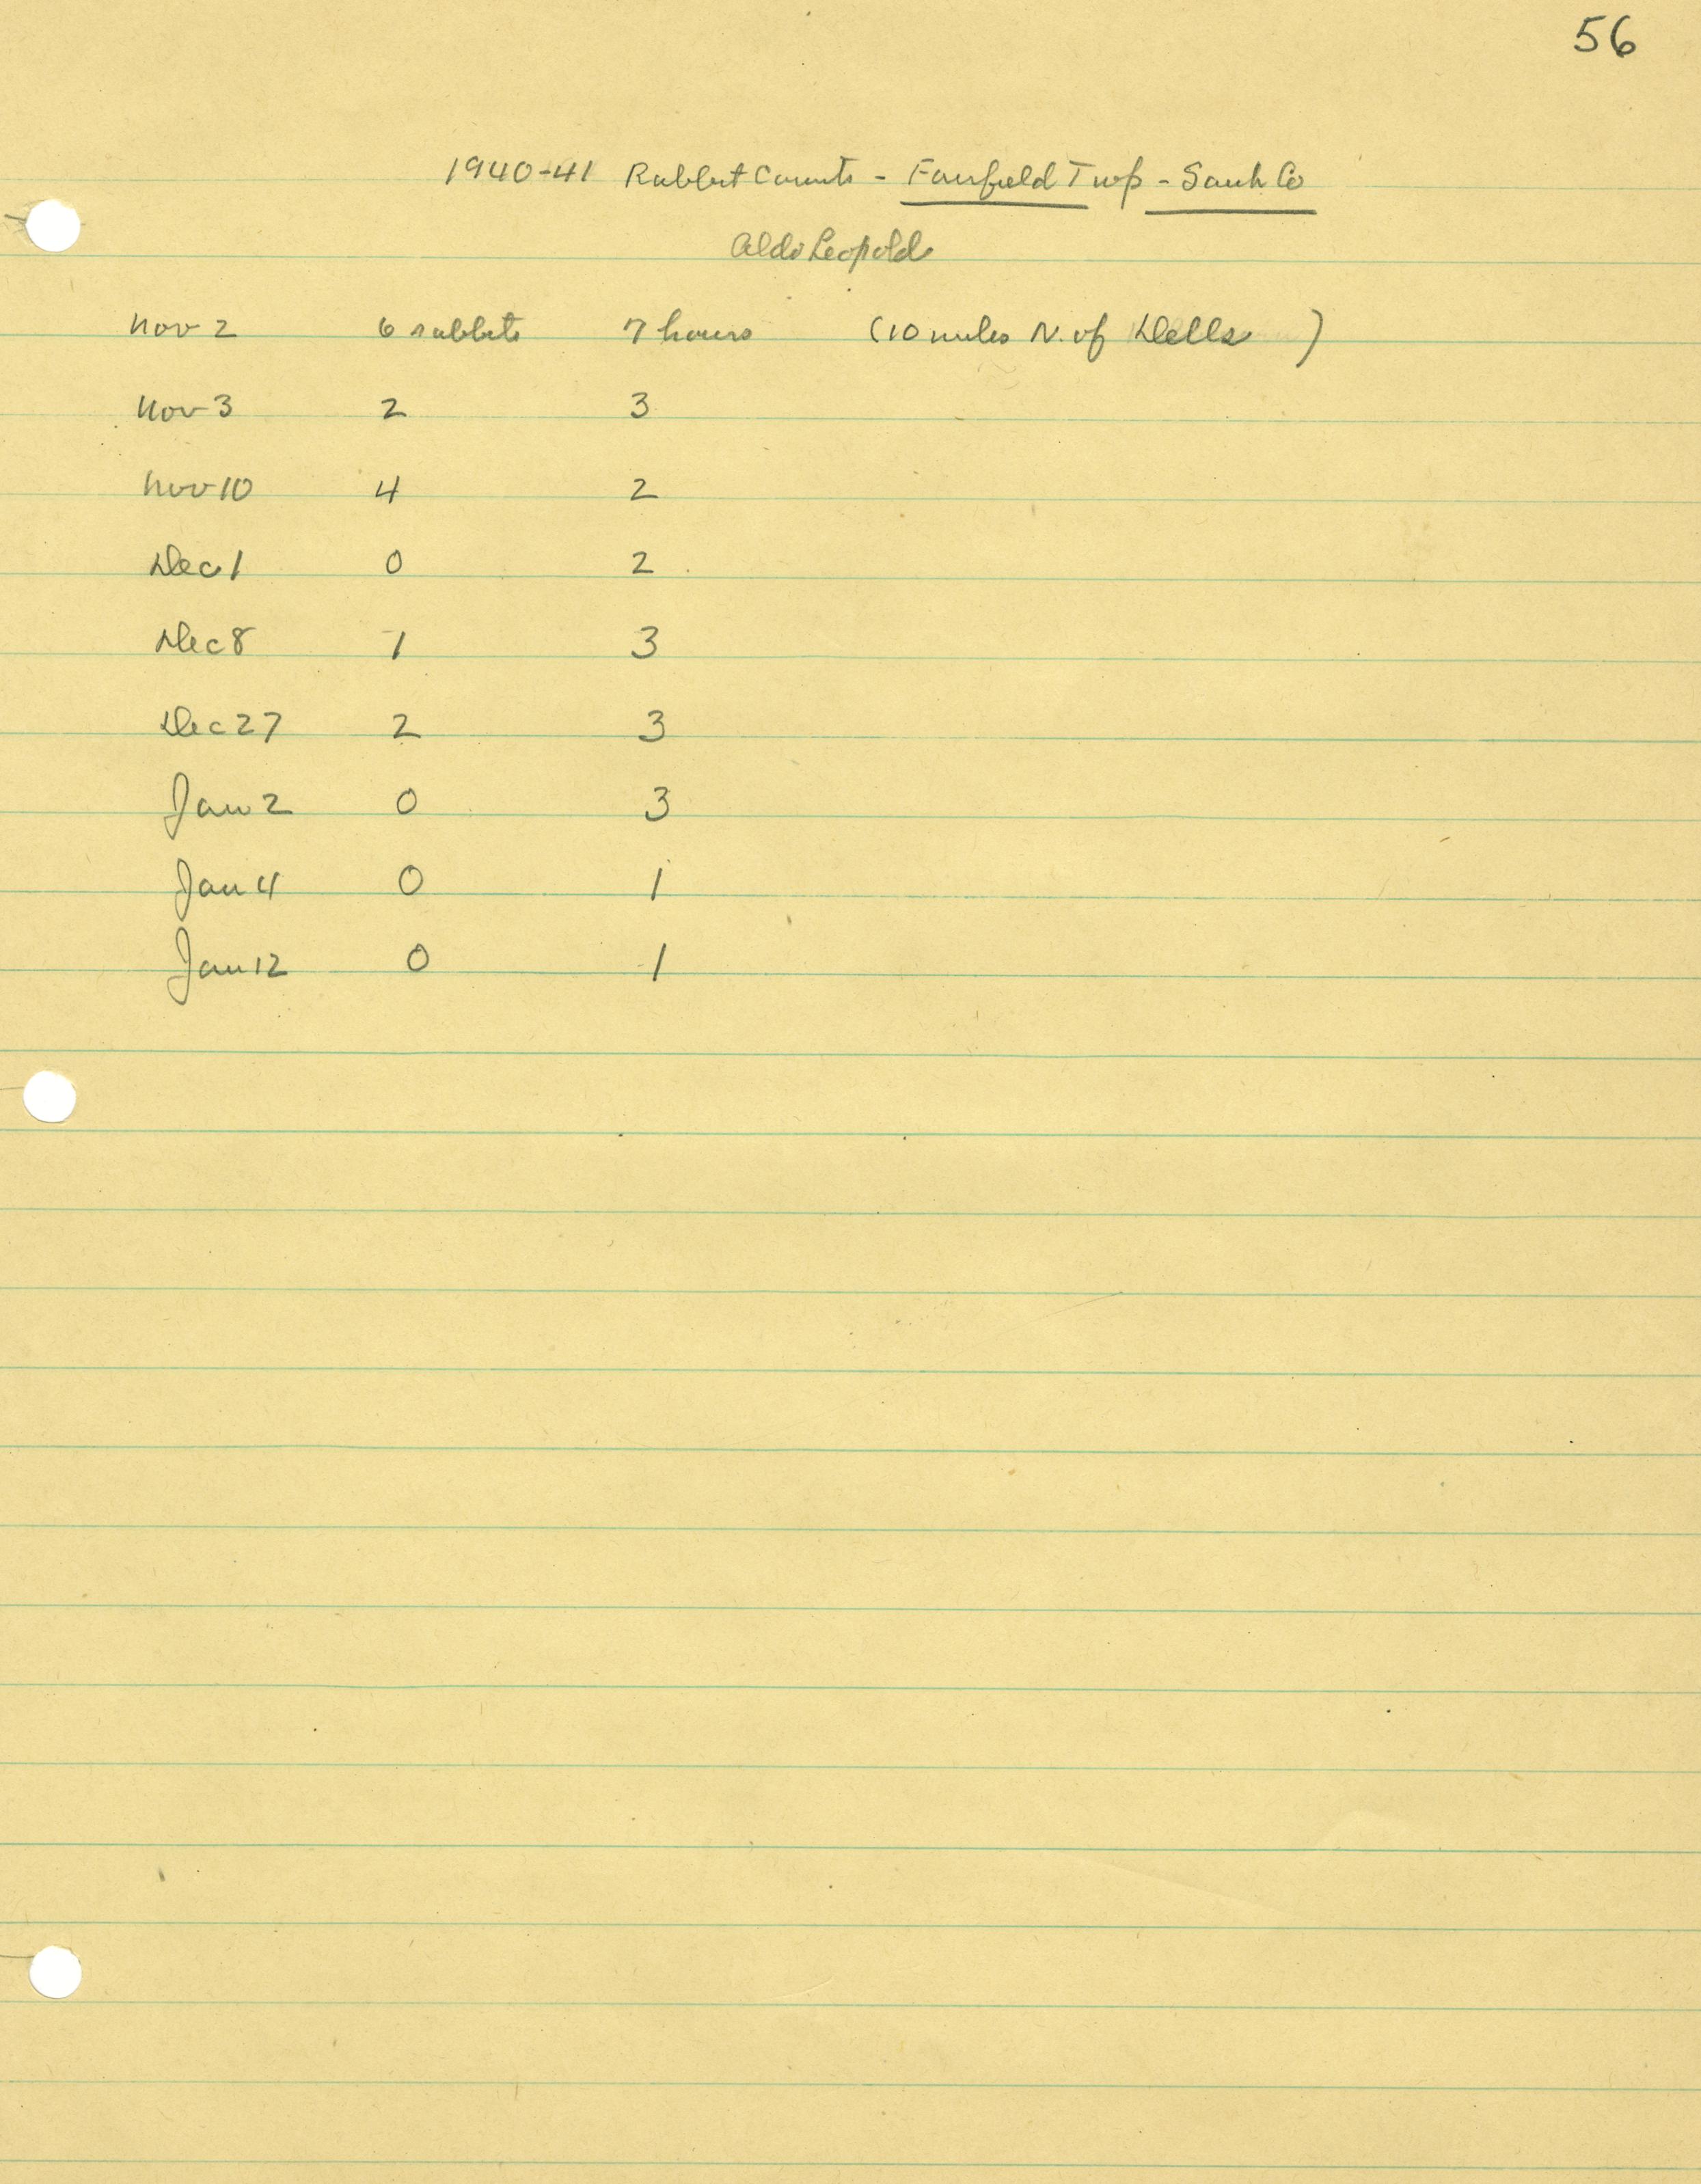 56
1940-41 Rabbit Counts - Fairfield Twp - Sauk Co
Aldo Leopold
Nov 2 6 rabbits 7 hours (10 miles N. of Dells )
Nov 3 2 3
Nov 10 4 2
Dec 1 0 2
Dec 8 1 3
Dec 27 2 3
Jan 2 0 3
Jan 4 0 1
Jan 12 0 1